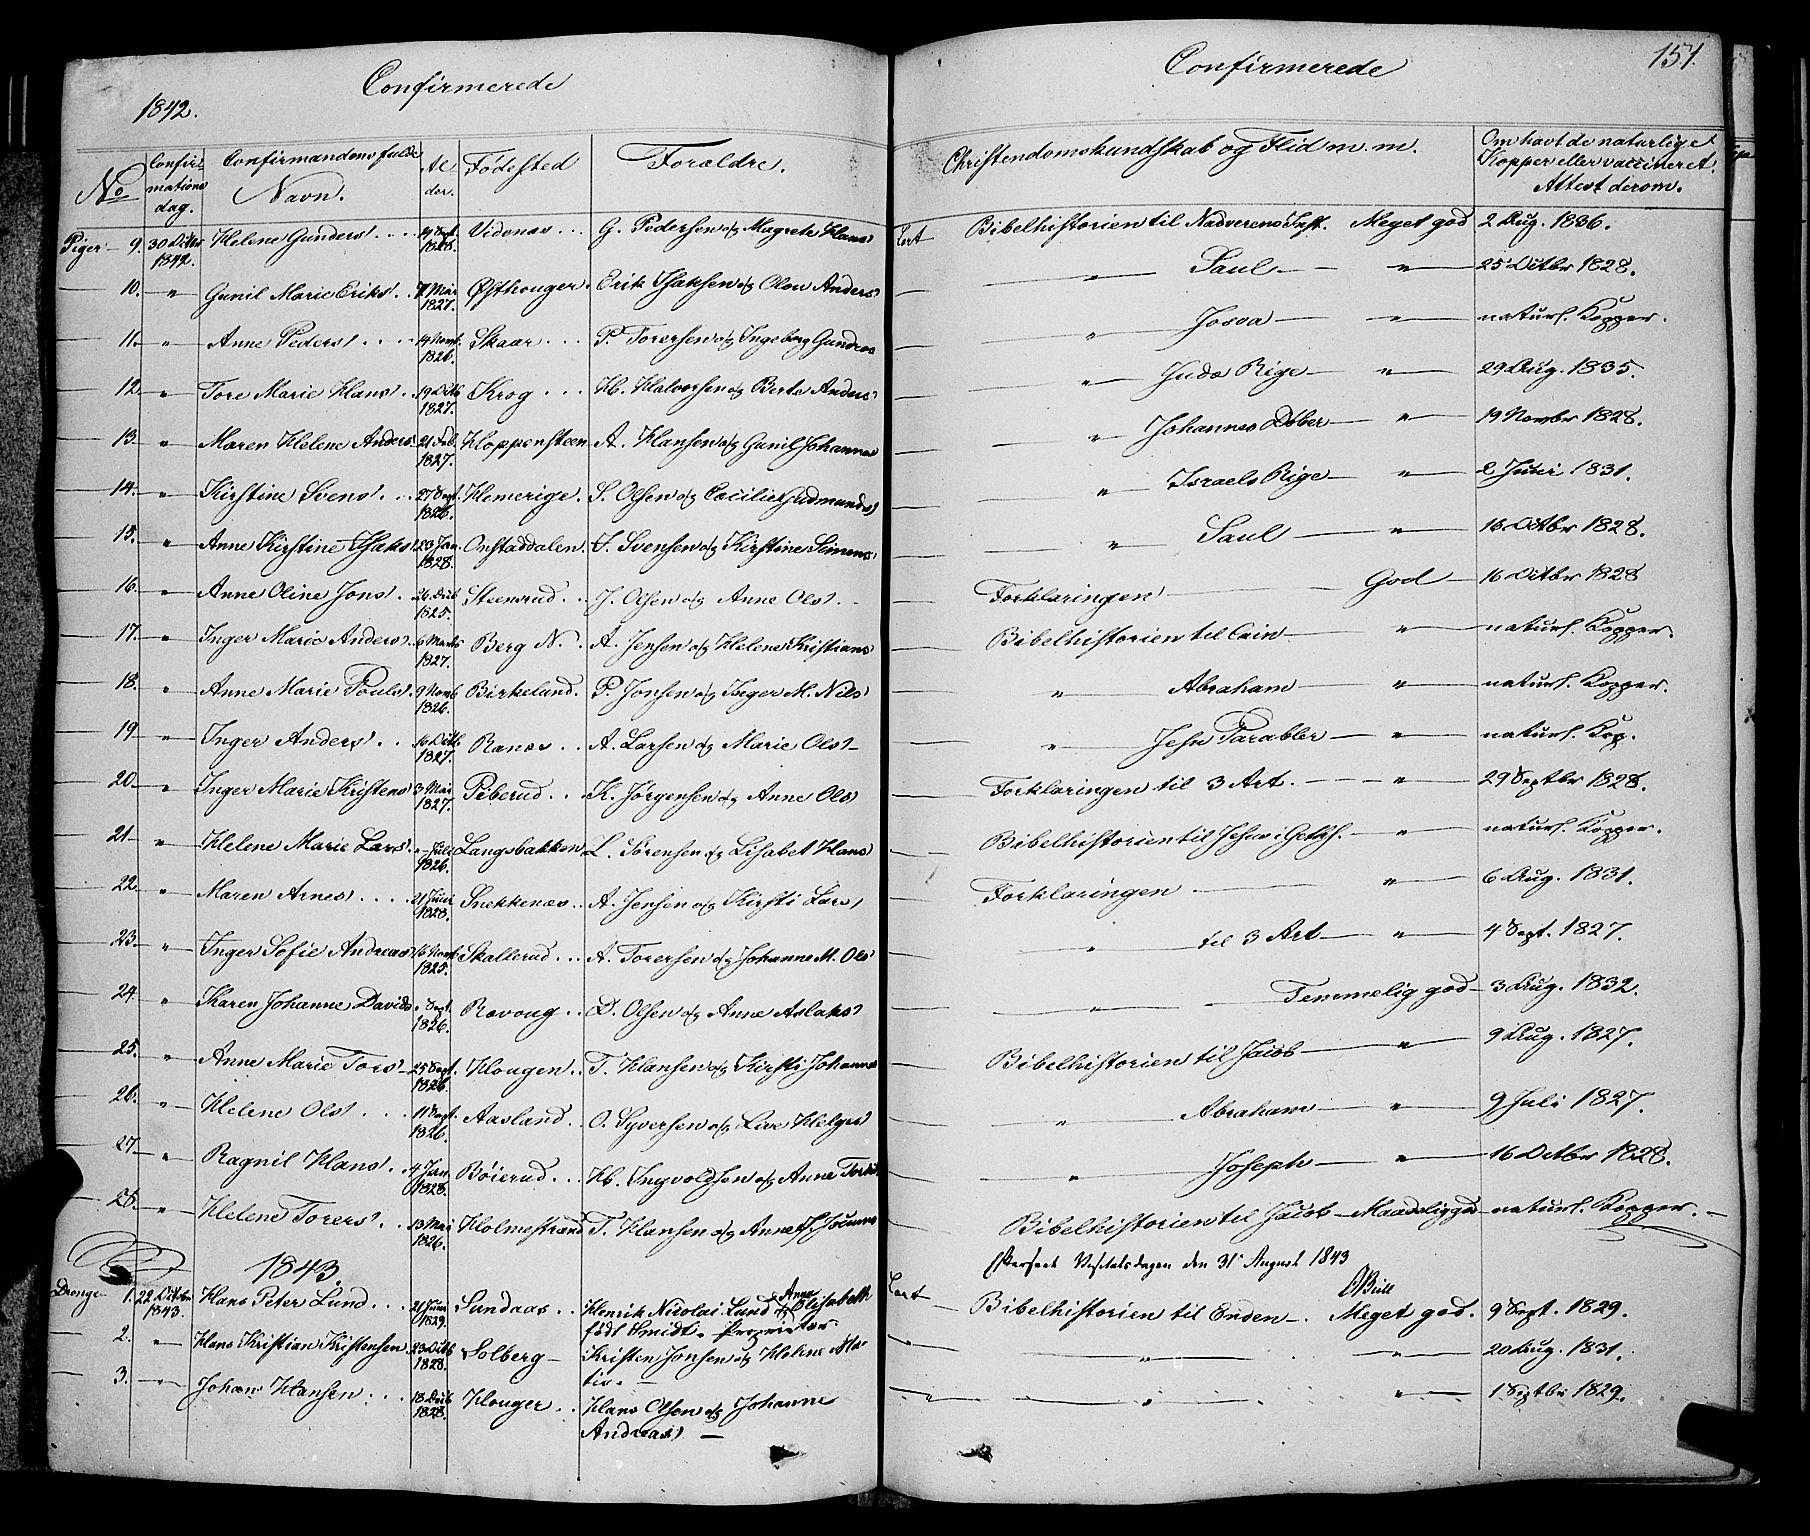 Confirmerede
1842.
No
Confir-
mations
dag.
Confirmandens fulde
Navn.
Al
der.
Fødested
Forældre.
Piger 9. 30 Octbr 1842. Helene Gunders 19 Sept. 1828. Videnæs G. Pedersen og Magrete Hans
10. " Gunil Marie Eriks 7 Mai 1827. Østhouger Erik Isaksen og Olou Anders
11. " Anne Peders 14 Novb. 1826. Skaar P. Torersen og Ingeborg Gundros
12. " Tore Marie Hans 19 Octb 1827. Krog H. Halvorsen og Berte Anders
13. " Maren Helene Anders 21 Feb. 1827. Kloppensteen A. Hansen og Gunil Johannes
14. " Kirstine Svens 27 Sept. 1826. Hemerige S. Olsen og Cecilie Gudmunds
15. " Anne Kirstine Isaks 23 Jan. 1828. Onstaddalen I. Svensen og Kirstine Simens
16. " Anne Oline Jons 26 Decb 1825. Steensrud J. Olsen og Anne Ols
17. " Inger Marie Anders 6 Marts 1827. Berg N. A. Jensen og Helene Kristians
18. " Anne Marie Pouls 9 Novb 1826. Birkeland P. Jonsen og Inger M. Nils
19 " Inger Anders 10 Octb. 1827. Ranæs A. Larsen og Marie Ols
20. " Inger Marie Kristens 3 Mai 1827. Peberud K. Jørgensen og Anne Ols
21. " Helene Marie Lars - Juli 1826. Langsbakken L. Sørensen og Lisabet Hans
22. " Maren Arnes 21 Juni 1828. Snekkenæs A. Jensen og Kirsti Lars
23. " Inger Sofie Andreas 16 Novb 1825. Skallerud A. Torersen og Johanne M. Ols
24. " Karen Johanne Davids Sept. 1826. Rovoug D. Olsen og Anne Aslaks
25. " Anne Marie Tors 25 Sept. 1826. Hougen T. Hansen og Kirsti Johannes
26. " Helene Ols 11 Sept. 1826. Aasland O. Syversen og Live Helges
27. " Ragnil Hans 4 Jan. 1828. Böierud H. Ingvoldsen og Anne
28. " Helene Torers 13 Mai 1826. Holmestrand T. Hansen og Anne
1843.
Drenge 1. 22 Octbr 1843. Hans Peter Lund 21 Juni 1829. Sundaas Henrik Nicolai Lund og Anne Elisabeth
født Smidt. Proprietær
2. " Hans Kristian Kristensen 23 Octb 1828. Solberg Kristen Jonsen og Helene
3. " Johan Hansen 18 Decb 1828. Houger Hans Olsen og Johanne
Andreas
Confirmerede
151.
Christendomskundskab og Flid m. m.
Om havt de naturlige
Kopper eller vaccineret.
Attest derom.
Lært Bibelhistorien til Nadverens Inst. Meget god 2 Aug. 1836.
" Saul " 25 Octbr 1828.
" Josva " naturl. Kopper.
" Juda Rige " 29 Aug. 1835.
" Johannes Døber " 19 Novbr 1828.
" Israels Rige " 2 Juni 1831.
" Saul " 16 Octbr 1828.
Forklaringen God 16 Octbr 1828
Bibelhistorien til Cain " naturl. Kopper.
" Abraham " naturl. Kopper.
" Jesu Parabler " naturl. Kop.
Forklaringen til 3 Art. " 29 Septbr 1828.
Bibelhistorien til Jesus i Geths. " naturl. Kopper.
Forklaringen " 6 Aug. 1831.
" til 3 Art " 4 Sept. 1827.
" Temmelig god 3 Aug. 1832.
Bibelhistorien til Jacob " 9 Aug. 1827.
" Abraham " 9 Juli 1827.
" Joseph " 16 Octbr 1828.
Bibelhistorien til Jacob Maadelig god naturl. Kopper.
Efterseet Visitatsdagen den 31 August 1843
Lært Bibelhistorien til Enden. Meget god. 9 Sept. 1829.
" " " 20 Aug. 1831.
" " " 1 Septbr 1829.